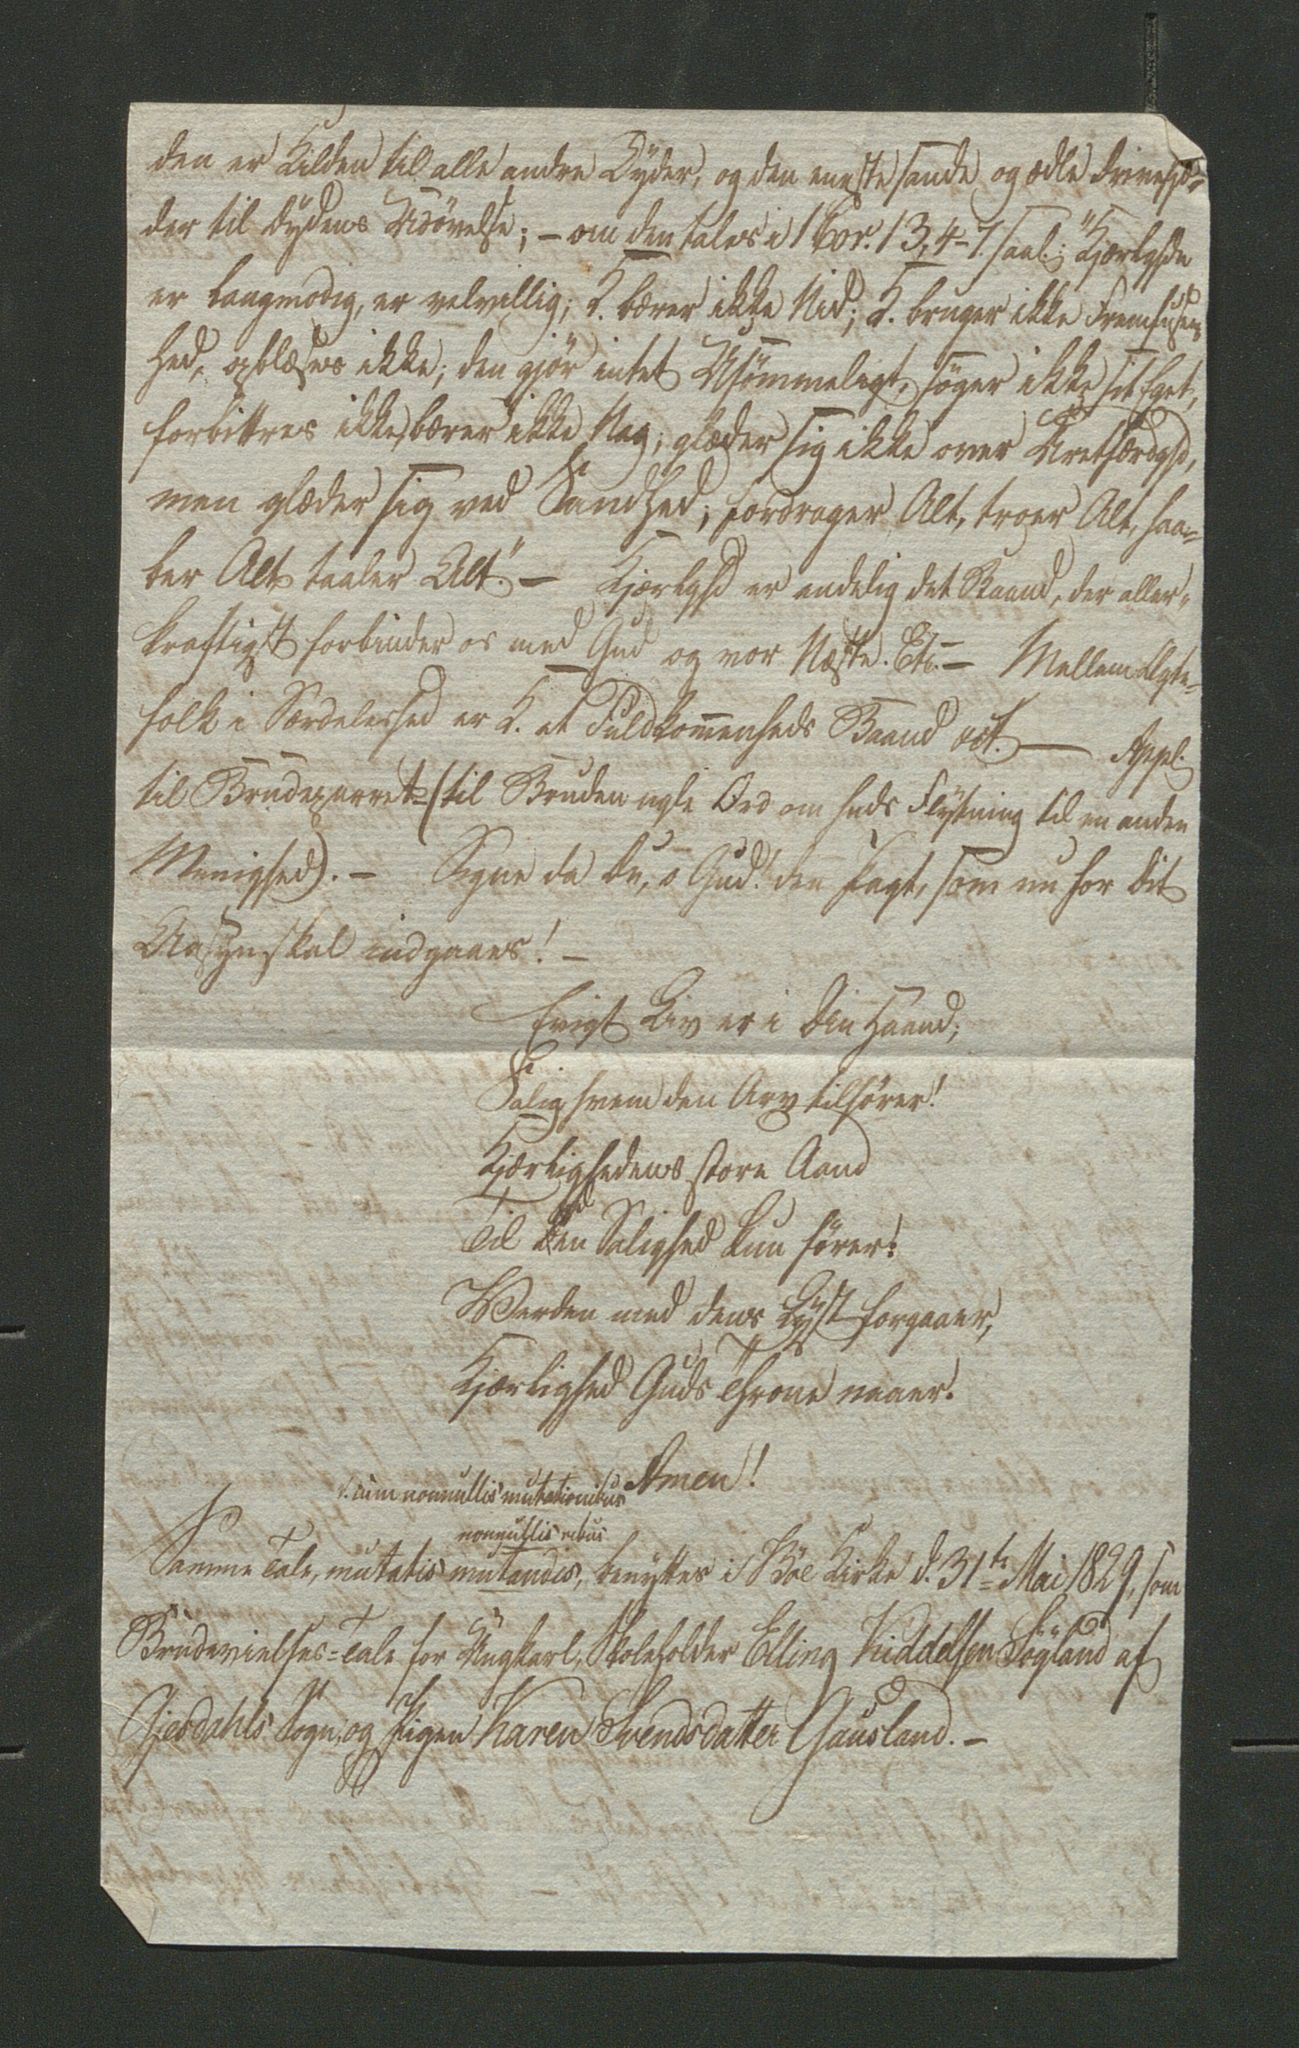 den er Kilden til alle andre Dyder, og den eneste sande og ædle Drivefjæ-
der til Dydens Udövelse; – om den tales i 1 Cor. 13, 4-7. saal.: "Kjærlighd
er langmodig, er velvillig; K. bærer ikke Nid; K. bruger ikke Fremfusen-
hed, opblæses ikke; den gjör intet Usömmeligt, söger ikke sit Eget,
forbittres ikke, bærer ikke Nag; glæder sig ikke over Uretfærdighd,
men glæder sig ved Sandhed; fordrager Alt, troer Alt, haa-
ber Alt taaler Alt". – Kjærlighd er endelig det Baand, der aller-
kraftigst forbinder os med Gud og vor Næste. Etc. – Mellem Ægte-
folk i Særdeleshed er K. et Fuldkommenheds Baand osv. – Appl.
til Brudeparret – (til Bruden nogle Ord om hends Flytning til en anden
Menighed). – Signe da Du, o Gud! den Pagt, som nu for Dit
Aasyn skal indgaaes! –
Evigt Liv er i Din Haand;
Salig hvem den Arv tilhörer!
Kjærlighedens store Aand
Til den Salighed kun förer:
Verden med dens Lyst forgaaer,
Kjærlighed Guds Throne naaer.
Amen!
cum nonnullis mutationibus
nonnullis rebus
Samme Tale, mutatis mutandis, benyttes i Böe Kirke d. 31te Mai 1829, som
Brudevielses-Tale for Ungkarl, Skoleholder Elling Kiddelsen Sögland af
Gjesdahls Sogn, og Pigen Karen Svendsdatter Gausland. –